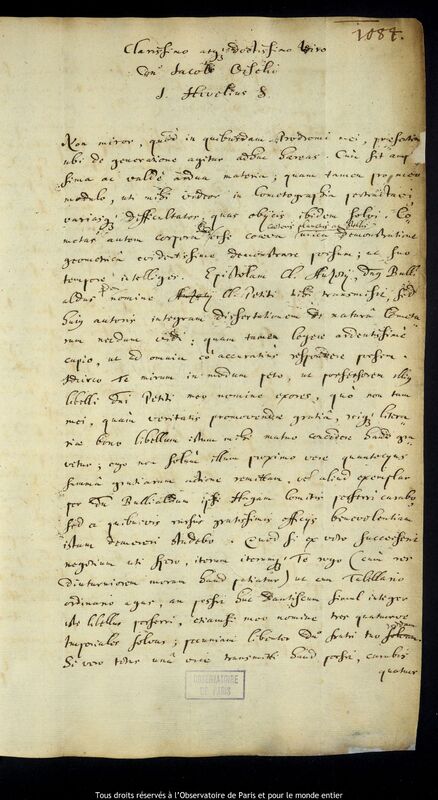 1088.
Clarissimo atque doctissimo Viro
Dno Jacobo Oiselio
J. Hevelius S.
Non miror, quòd in quibusdam Prodromi mei, præsertim
ubi de generatione agitur adhuc hæreas. Cùm sit
ac valdè ardua materia; quam tamen pro meo
modulo, uti mihi videor in Cometographia pertractavi;
variasque difficultates quas objicis ibidem solvi. Co-
metas autem corpora esse
geometricâ evidentissimè demonstrare possum; ut suo
tempore intelliges. Epistolam Cl. Dnus Bulli-
aldus nomine Cl. Petiti tibi transmisit, sed
hujus autoris integram Dissertationem de naturâ Cometa-
rum necdum vidi; quam tamen legere ardentissimè
cupio, ut ad omnia eò accuratius respondere possem.
Idcirco Te mirum in modum peto, ut possessorem illius
libelli Dni Petiti meo nomine ores, quo non tam
mei, quàm veritatis promovendæ gratiâ, reique litera-
riæ bono libellum istum mihi mutuo concedere haud gra-
vetur; ego non solùm illum proximo vere
summâ gratiarum actione remittam, vel aliud exemplar
per Dn. Bullialdum Hagam Comitis perferri curabo
sed et quibusvis rursùs gratissimis officijs benevolentiam
istam demereri studebo. Quod si ex voto successerit
negotium uti spero, iterum iterumque Te rogo (cùm res
diuturniorem moram haud patiatur) ut cum Tabellario
ordinario agas, an possit huc Dantiscum simul integer
iste libellus perferri, etiamsi meo nomine tres quatuorve
Imperiales solvas; pecuniam libenter Dn. fratri tuo
Si vero totus unâ vice transmitti haud possit, curabis
quatuor
OBSERVATOIRE
DE PARIS
Tous droits réservés à l'Observatoire de Paris et pour le monde entier